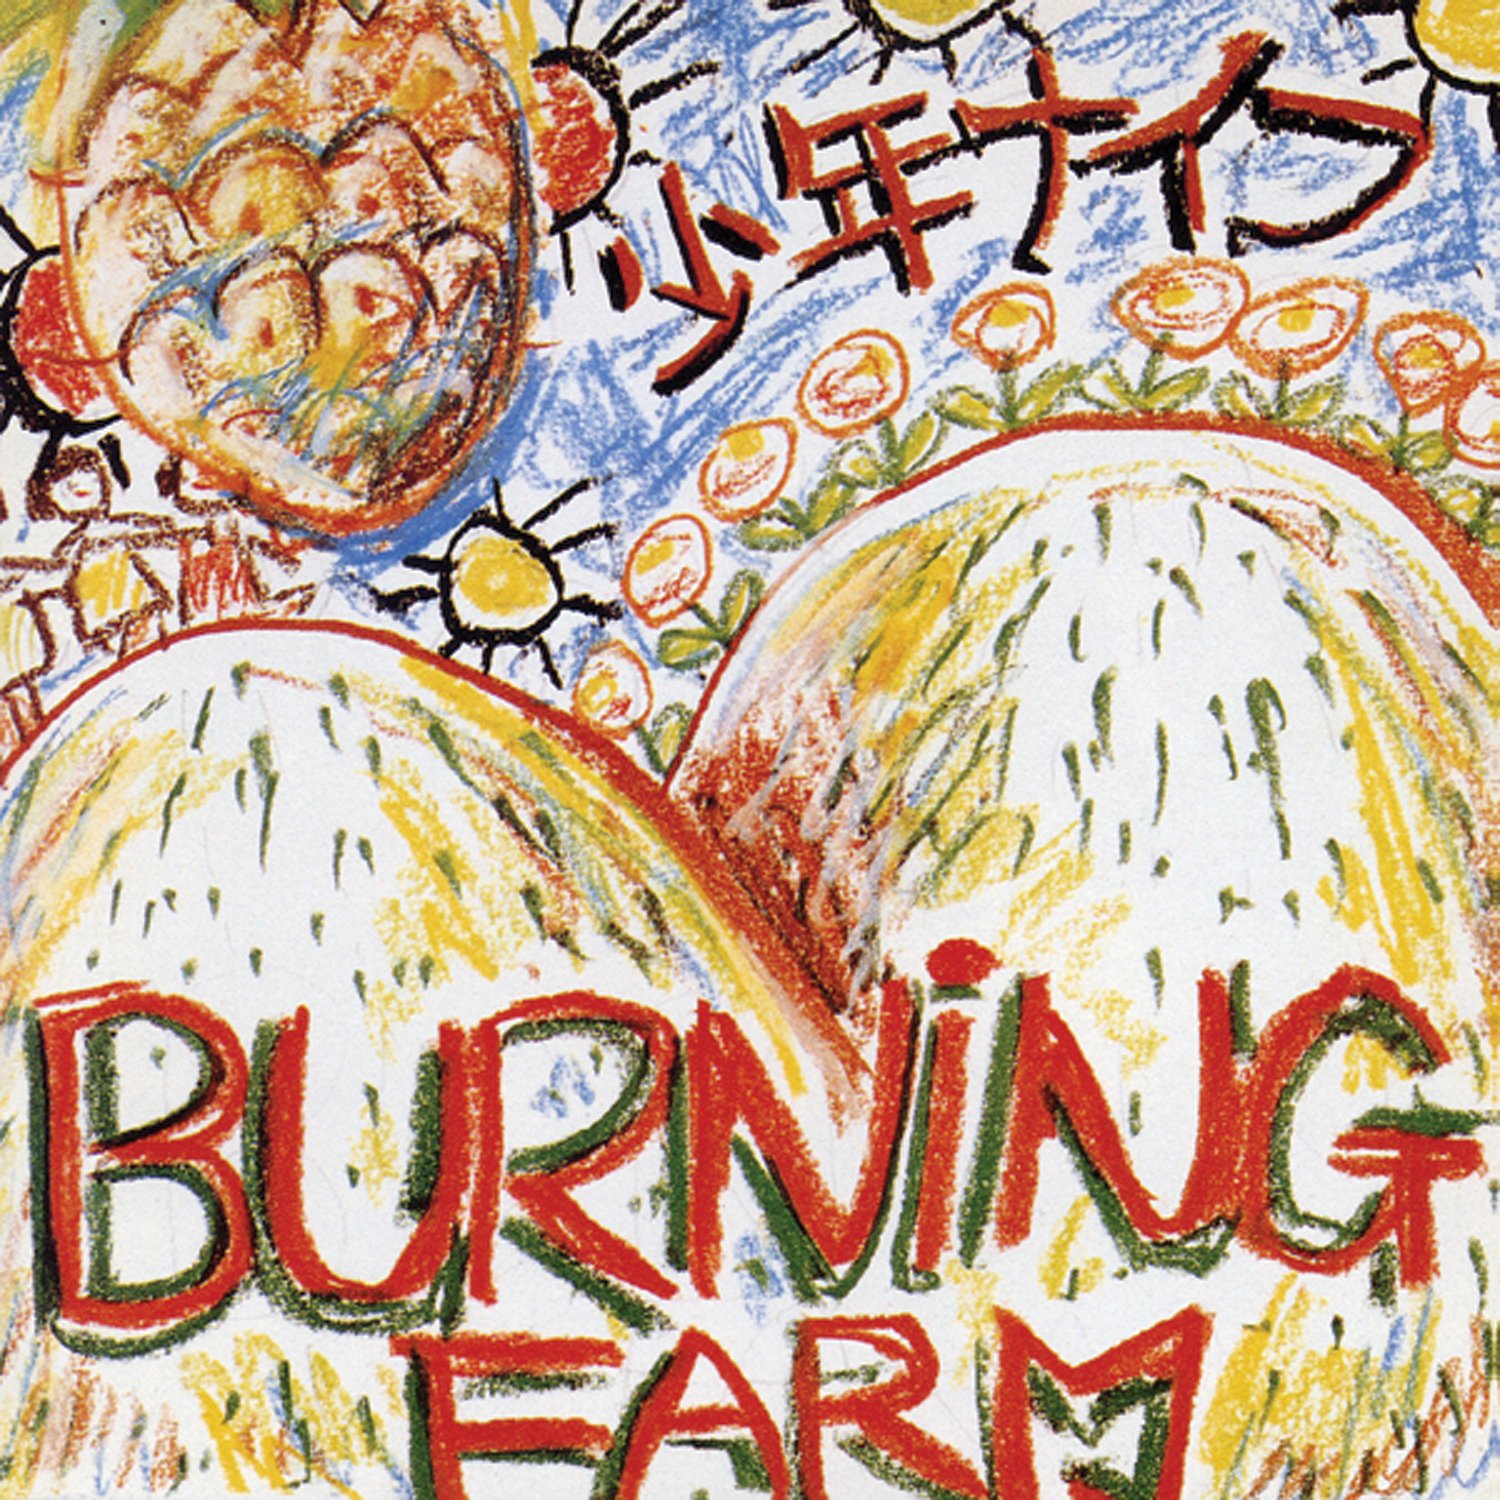 少年ナイフ
BURNiNG
FARM